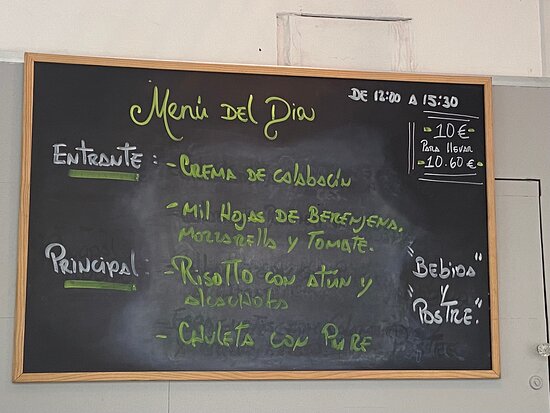 Menú DEL Dia
DE 12:00 A 15:30
- 10 € -
PARA llevar
- 10.60 € -
ENTRANTE : - CREMA DE CALABACÍN
- MIL HOJAS DE BERENJENA,
MOZZARELLA Y TOMATE.
PRINCIPAL : - RISOTTO CON ATÚN Y
ALCACHOFAS
- CHULETA CON PURE
"BEBIDA"
Y
"POSTRE."